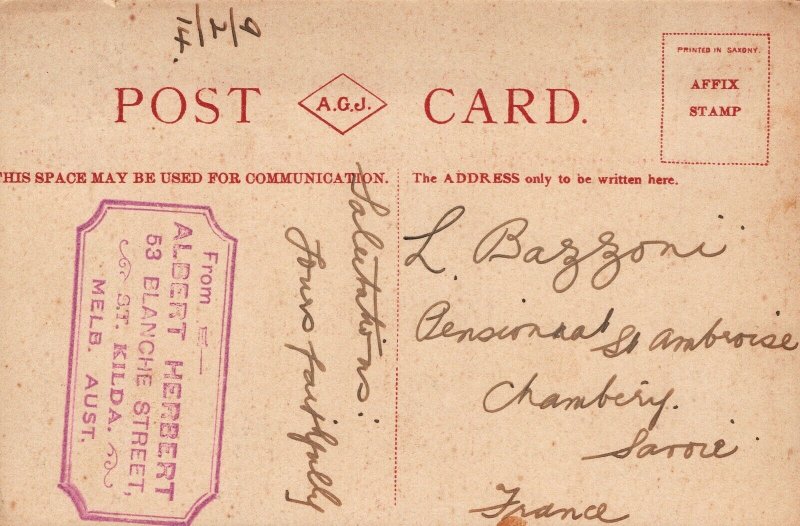 14/2/9
POST A.G.J. CARD.
PRINTED IN SAXONY.
AFFIX
STAMP
THIS SPACE MAY BE USED FOR COMMUNICATION.
The ADDRESS only to be written here.
From
ALBERT HERBERT
53 BLANCHE STREET,
ST. KILDA.
MELB. AUST.
Salutations.
Yours faithfully
L. Bazzoni
Pensionnat St Ambroise
Chambéry.
Savoie
France